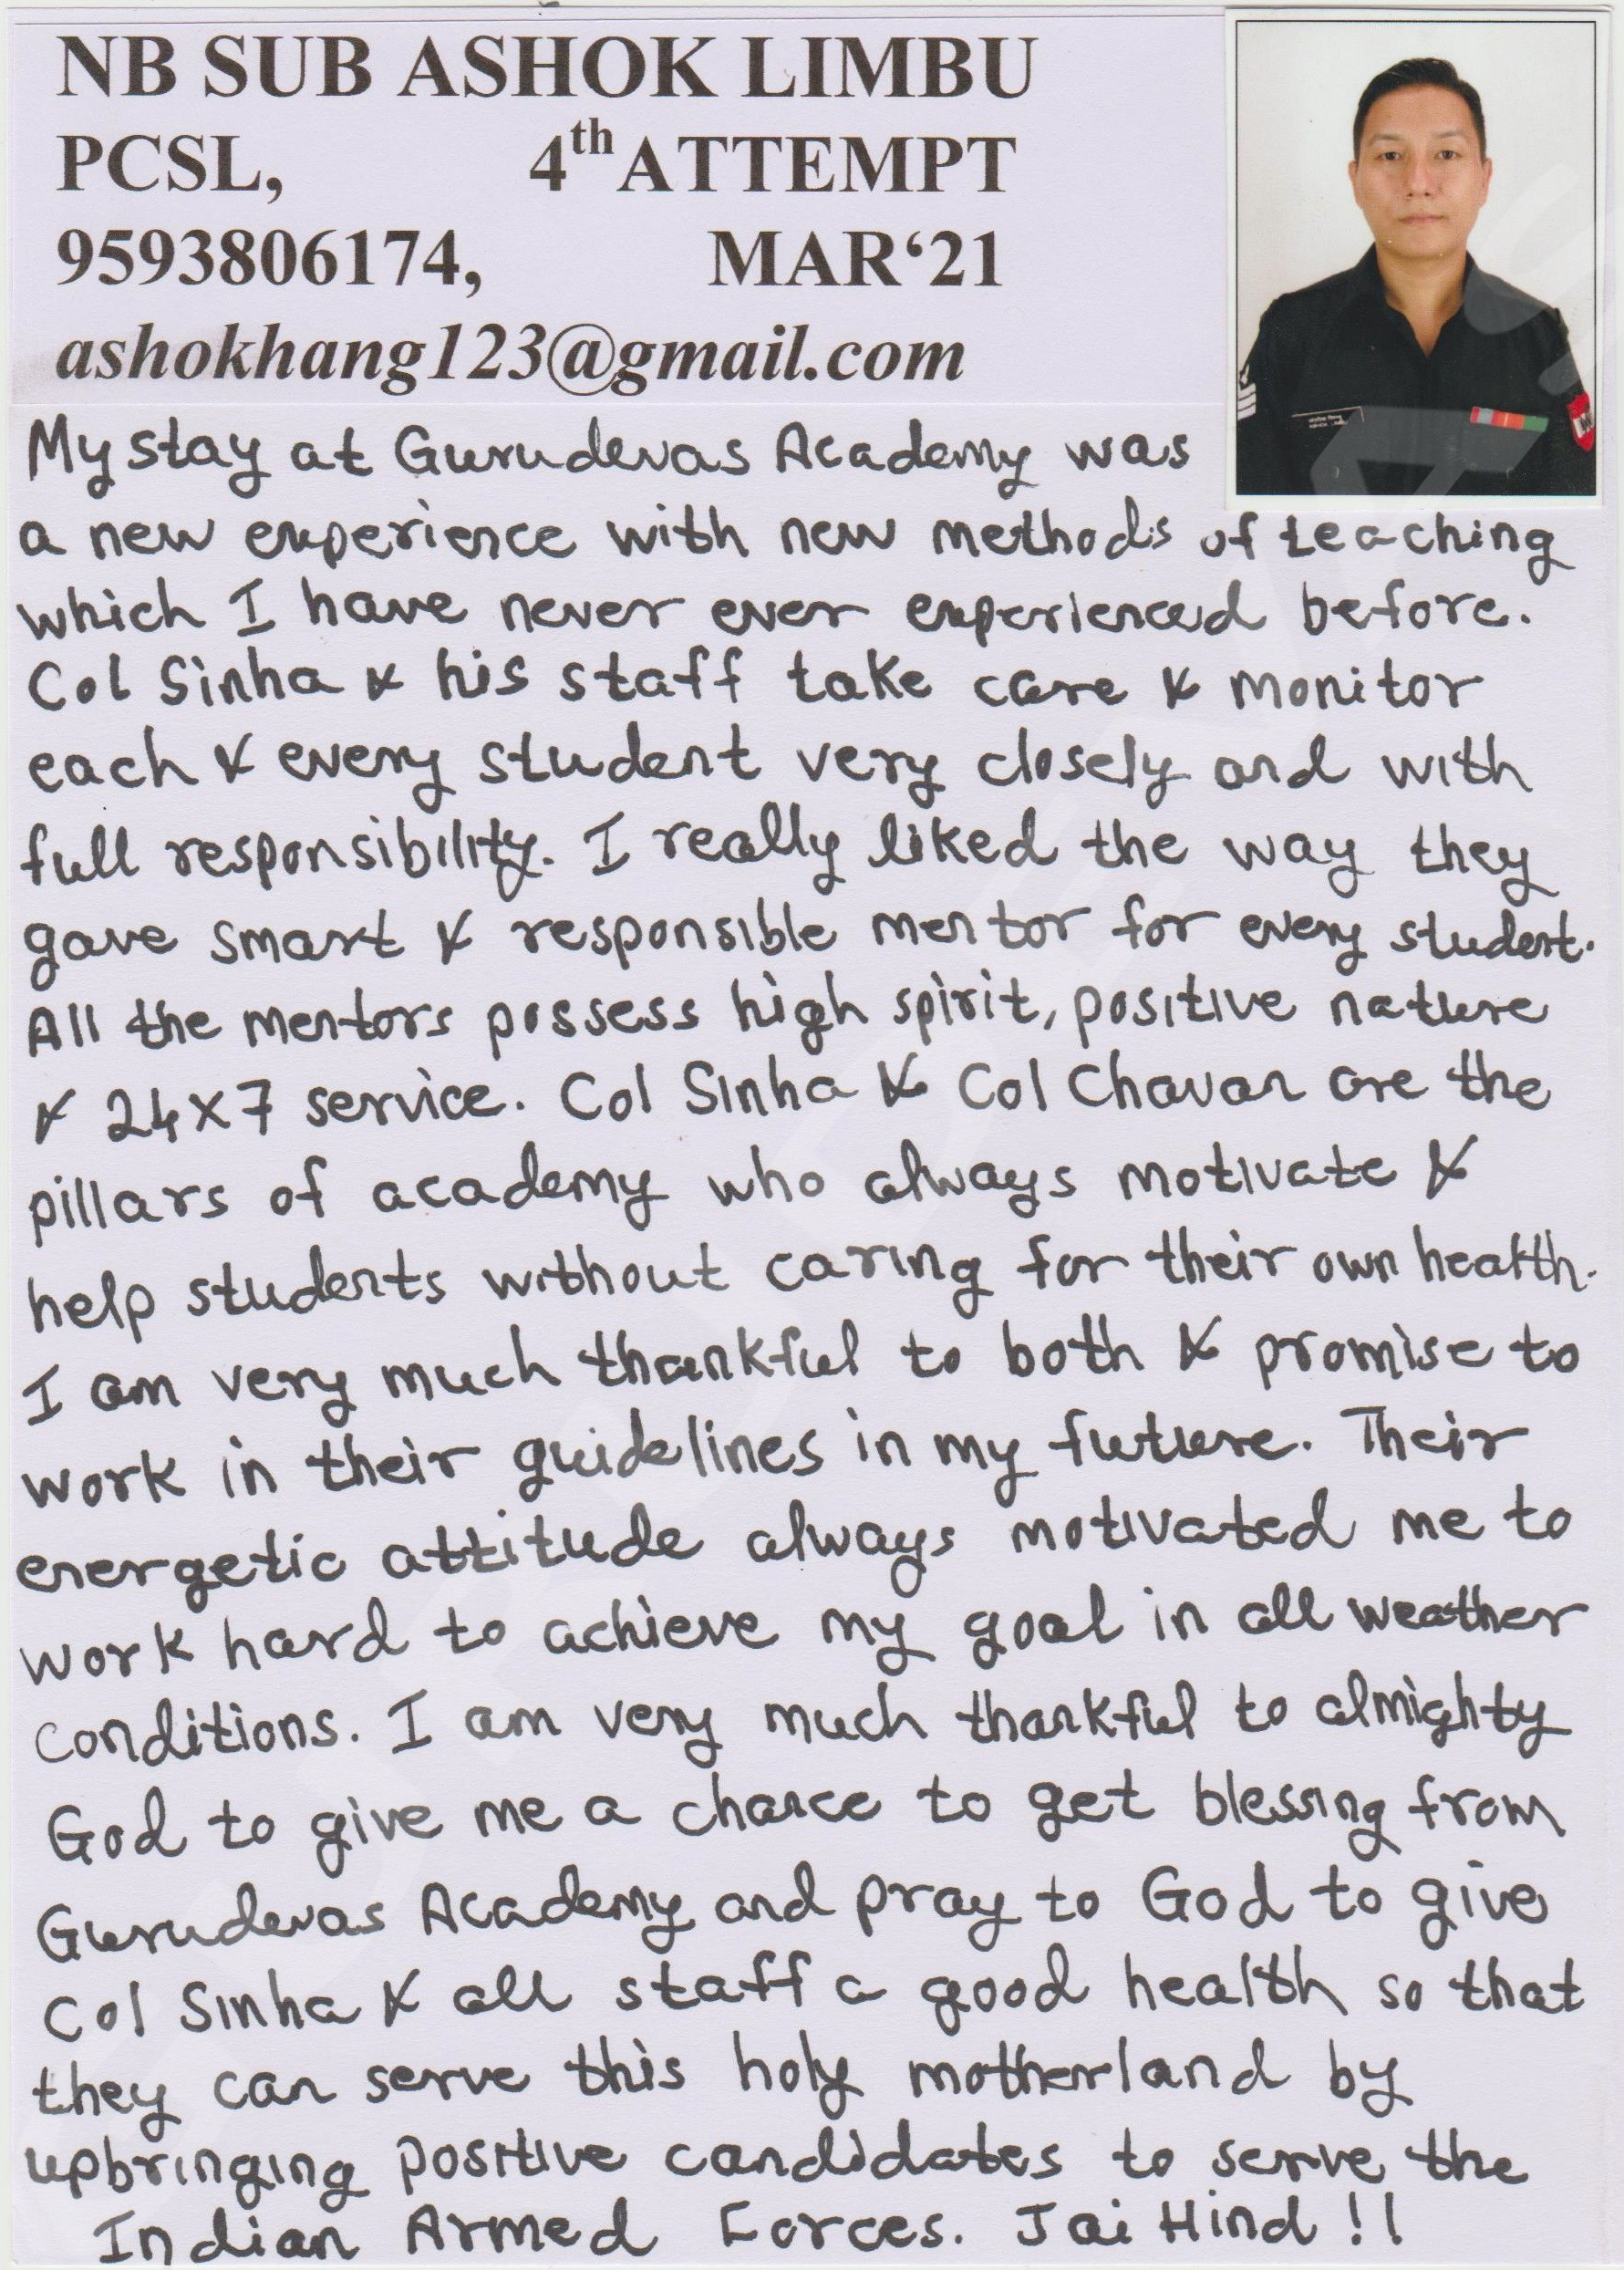 NB SUB ASHOK LIMBU
PCSL, 4th ATTEMPT
9593806174, MAR‘21
ashokhang123@gmail.com
My stay at Gurudevas Academy was
a new experience with new methods of teaching
which I have never ever experienced before.
Col Sinha & his staff take care & monitor
each & every student very closely and with
full responsibility. I really liked the way they
gave smart & responsible mentor for every student.
All the mentors possess high spirit, positive nature
& 24x7 service. Col Sinha & Col Chavan are the
pillars of academy who always motivate &
help students without caring for their own health.
I am very much thankful to both & promise to
work in their guidelines in my future. Their
energetic attitude always motivated me to
work hard to achieve my goal in all weather
conditions. I am very much thankful to almighty
God to give me a chance to get blessing from
Gurudevas Academy and pray to God to give
Col Sinha & all staff a good health so that
they can serve this holy motherland by
upbringing positive candidates to serve the
Indian Armed Forces. Jai Hind !!